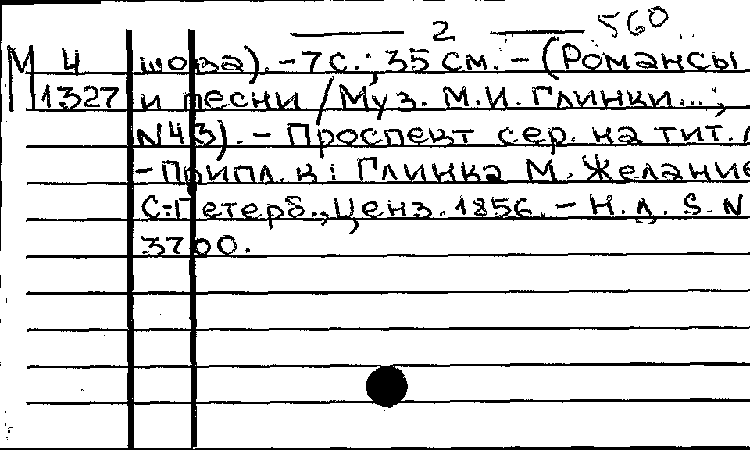 2 560
М 4 шова). - 7 с.; 35 см. - (Романсы
1327 и песни / Муз. М.И. Глинки...;
N43). - Проспект сер. на тит. л
- Припл. к: Глинка М. Желание
С.-Петерб., Ценз. 1856. - Н.д. S. N
3700.